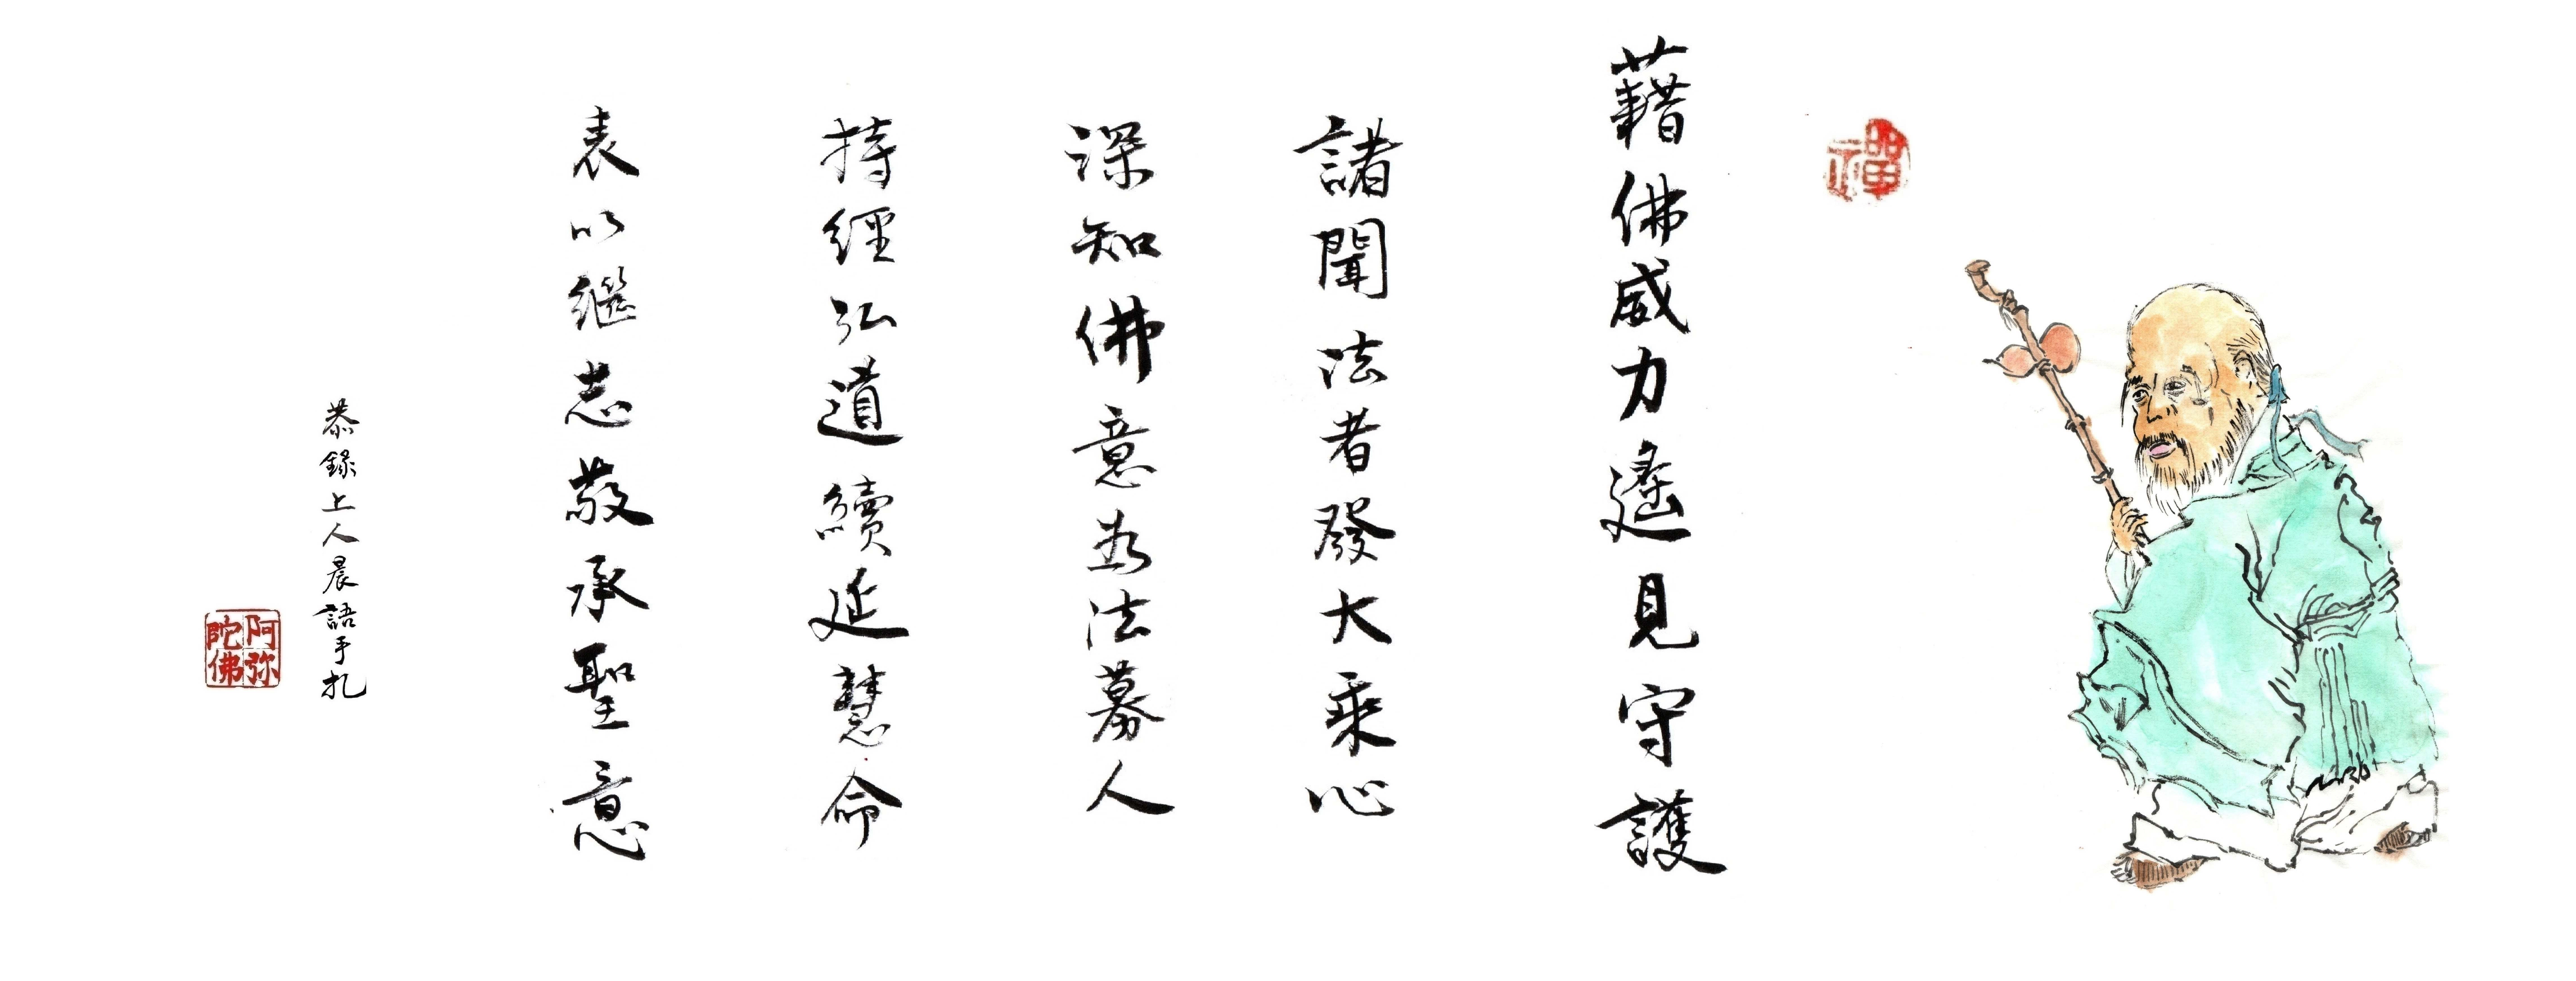 禪
藉佛威力遙見守護
諸聞法者發大乘心
深知佛意為法募人
持經弘道續延慧命
表以繼志敬承聖意
恭錄上人晨語手札
阿弥陀佛